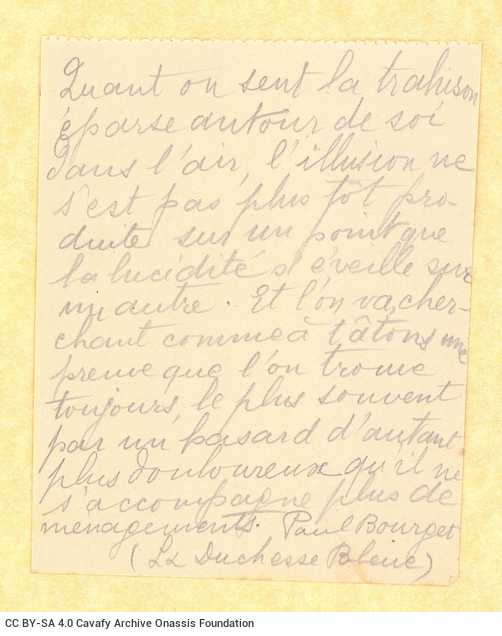 Quant on sent la trahison
éparse autour de soi
dans l'air, l'illusion ne
s'est pas plus tôt pro-
duite sur un point que
la lucidité s'éveille sur
un autre. Et l'on va cher-
chant comme à tâtons une
preuve que l'on trouve
toujours, le plus souvent
par un hasard d'autant
plus douloureux qu'il ne
s'accompagne plus de
ménagements. Paul Bourget
(La Duchesse Bleue)
CC BY-SA 4.0 Cavafy Archive Onassis Foundation